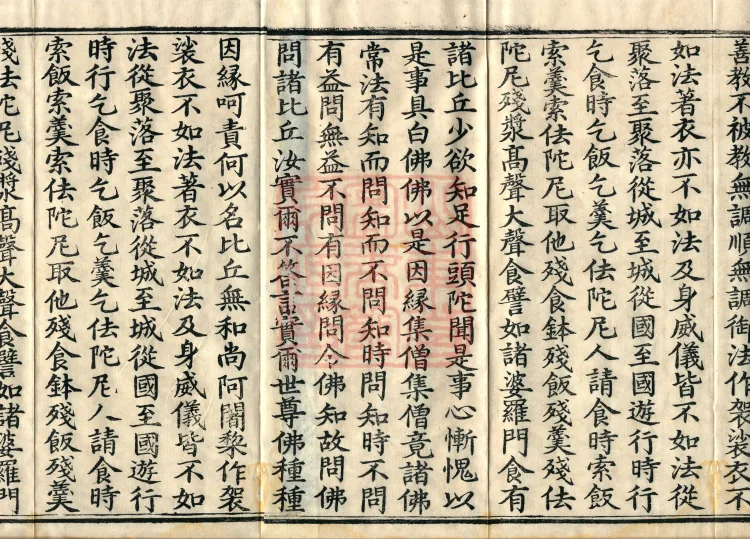 善教不被教無調順無調御法作袈裟衣不
如法著衣亦不如法及身威儀皆不如法從
聚落至聚落從城至城從國至國遊行時行
乞食時乞飯乞羹乞佉陀尼人請食時索飯
索羹索佉陀尼取他殘食鉢殘飯殘羹殘佉
陀尼殘漿高聲大聲食譬如諸婆羅門食有
諸比丘少欲知足行頭陀聞是事心慚愧以
是事具白佛佛以是因縁集僧集僧竟諸佛
常法有知而問知而不問知時問知時不問
有益問無益不問有因縁問今佛知故問佛
問諸比丘汝實爾不答言實爾世尊佛種種
因縁呵責何以名比丘無和尚阿闍黎作袈
裟衣不如法著衣不如法及身威儀皆不如
法從聚落至聚落從城至城從國至國遊行
時行乞食時乞飯乞羹乞佉陀尼人請食時
索飯索羹索佉陀尼取他殘食鉢殘飯殘羹
殘佉陀尼殘漿高聲大聲食譬如諸婆羅門